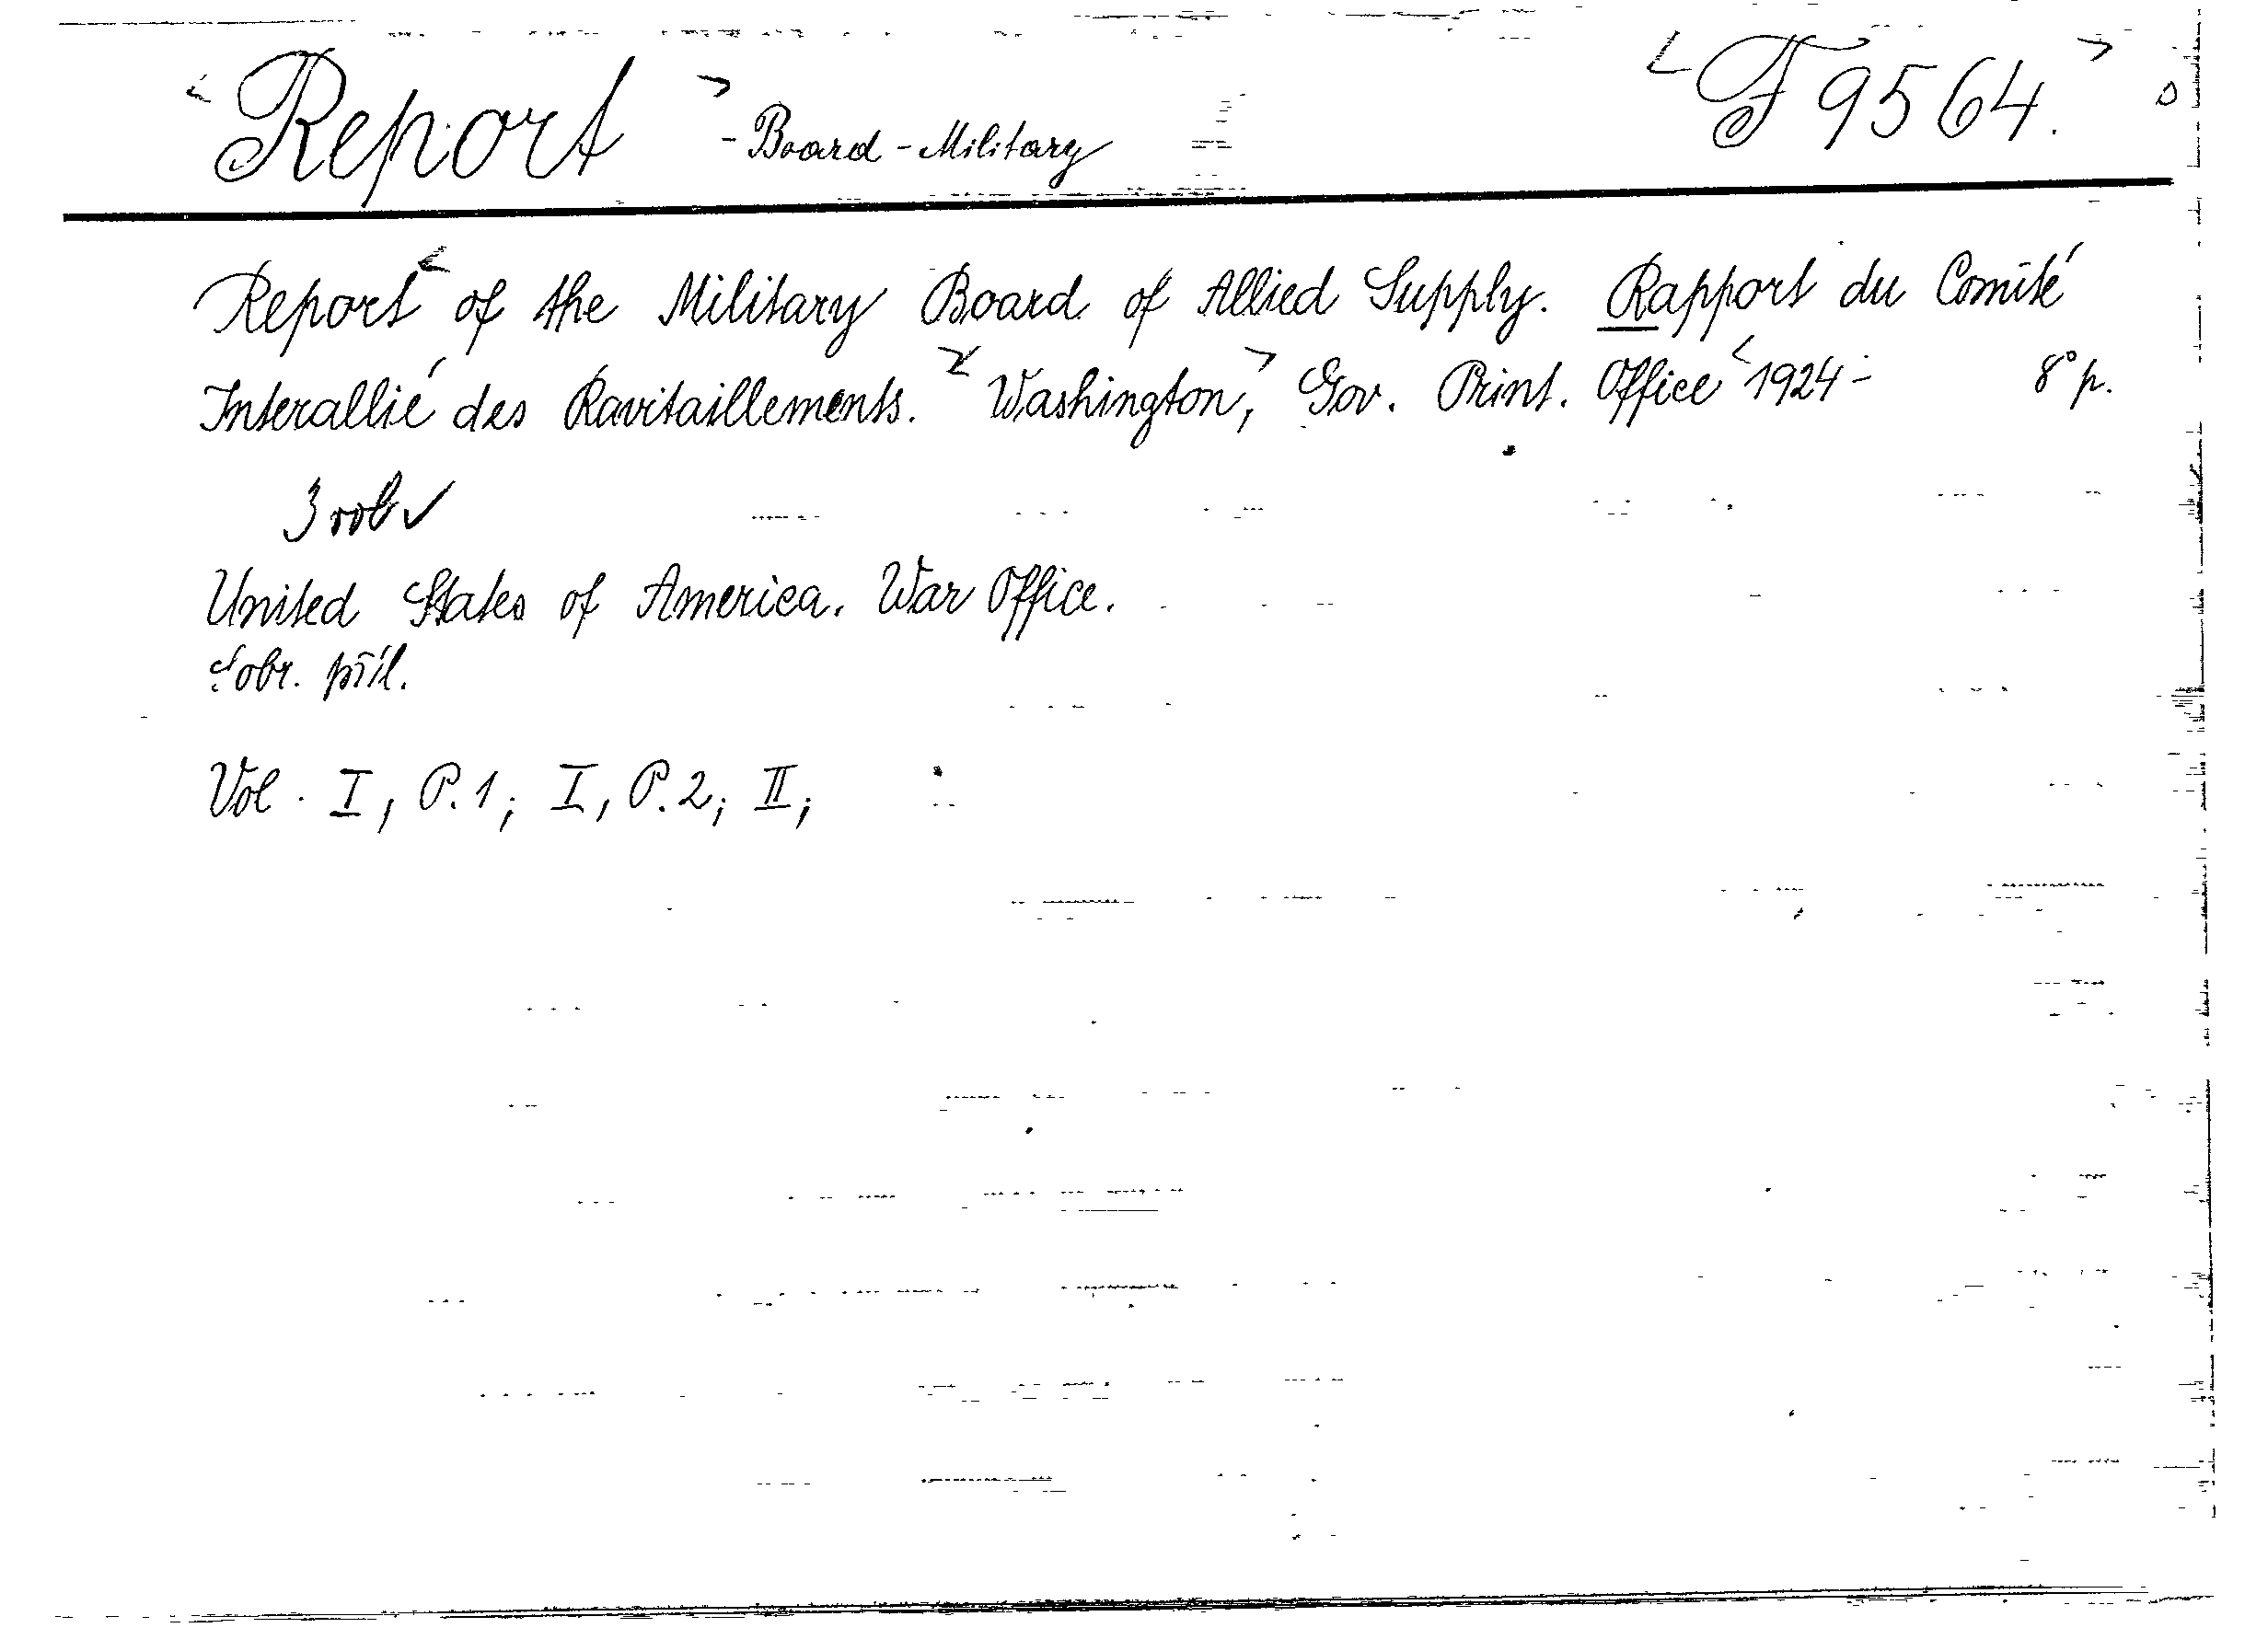 <Report> - Board - Military <F 9564.>
Report <of the Military Board of Allied Supply. Rapport du Comité
Interallié des Ravitaillements. > <Washington,> Gov. Print. Office <1924 - 8° p.
United States of America. War Office.
S obr. příl.
Vol. I, P. 1; I, P. 2; II;